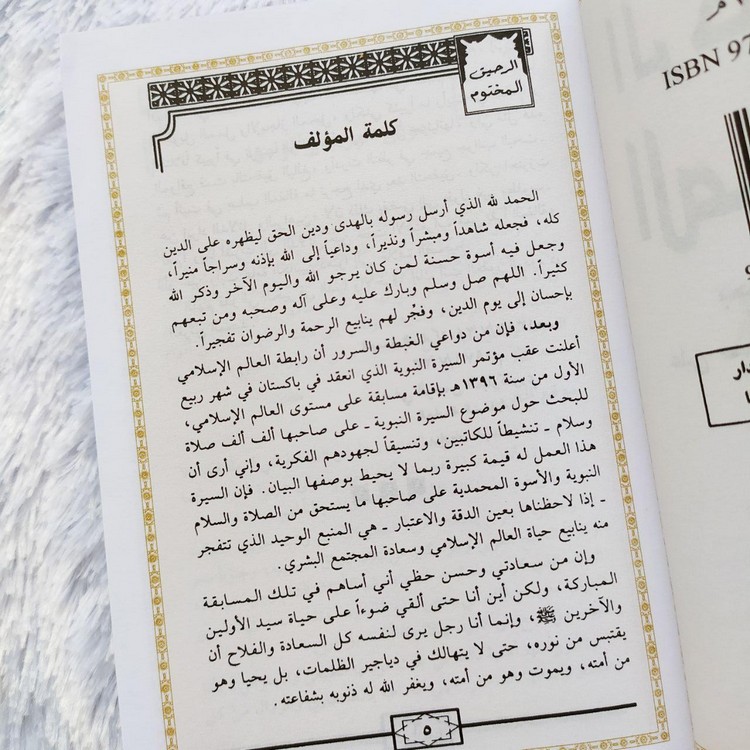 الرحيق
المختوم
كلمة المؤلف
الحمد لله الذي أرسل رسوله بالهدى ودين الحق ليظهره على الدين
كله، فجعله شاهداً ومبشراً ونذيراً، وداعياً إلى الله بإذنه وسراجاً منيراً،
وجعل فيه أسوة حسنة لمن كان يرجو الله واليوم الآخر وذكر الله
كثيراً. اللهم صل وسلم وبارك عليه وعلى آله وصحبه ومن تبعهم
بإحسان إلى يوم الدين، وفجر لهم ينابيع الرحمة والرضوان تفجيراً.
وبعد، فإن من دواعي الغبطة والسرور أن رابطة العالم الإسلامي
أعلنت عقب مؤتمر السيرة النبوية الذي انعقد في باكستان في شهر ربيع
الأول من سنة ١٣٩٦هـ بإقامة مسابقة على مستوى العالم الإسلامي،
للبحث حول موضوع السيرة النبوية ـ على صاحبها ألف ألف صلاة
وسلام ـ تنشيطاً للكاتبين، وتنسيقاً لجهودهم الفكرية، وإني أرى أن
هذا العمل له قيمة كبيرة ربما لا يحيط بوصفها البيان. فإن السيرة
النبوية والأسوة المحمدية على صاحبها ما يستحق من الصلاة والسلام
ـ إذا لاحظناها بعين الدقة والاعتبار ـ هي المنبع الوحيد الذي تتفجر
منه ينابيع حياة العالم الإسلامي وسعادة المجتمع البشري.
وإن من سعادتي وحسن حظي أني أساهم في تلك المسابقة
المباركة، ولكن أين أنا حتى ألقي ضوءاً على حياة سيد الأولين
والآخرين ﷺ، وإنما أنا رجل يرى لنفسه كل السعادة والفلاح أن
يقتبس من نوره، حتى لا يتهالك في دياجير الظلمات، بل يحيا وهو
من أمته، ويموت وهو من أمته، ويغفر الله له ذنوبه بشفاعته.
٥
ISBN 97